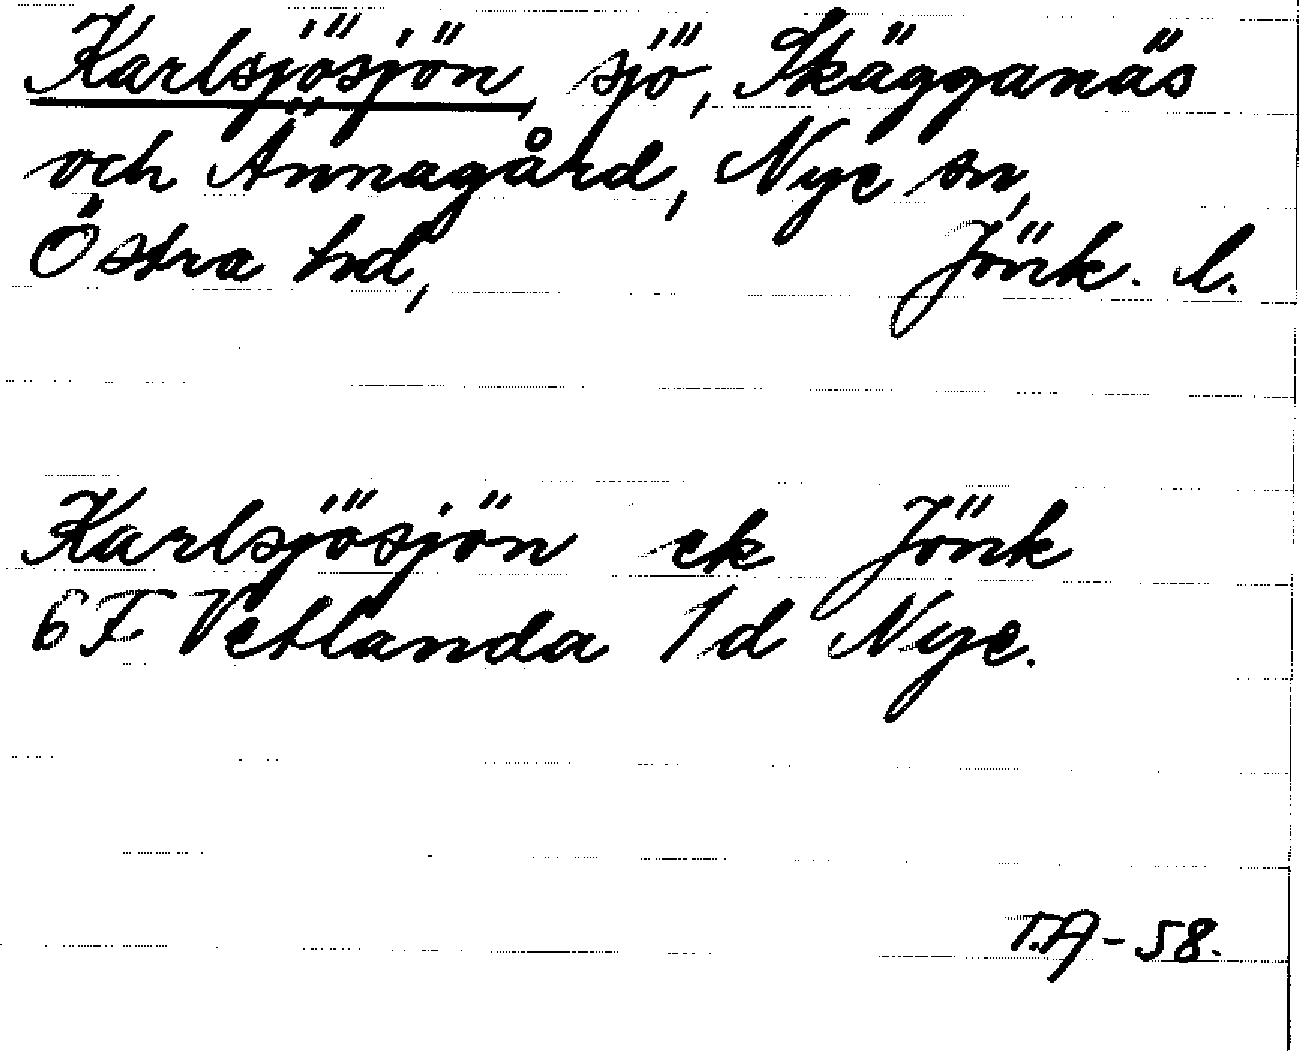 Karlsjösjön, sjö, Skägganäs
och Ännagård, Nye sn,
Östra hd, Jönk. l.
Karlsjösjön ek Jönk
6F Vetlanda 1d Nye.
T.A-58.